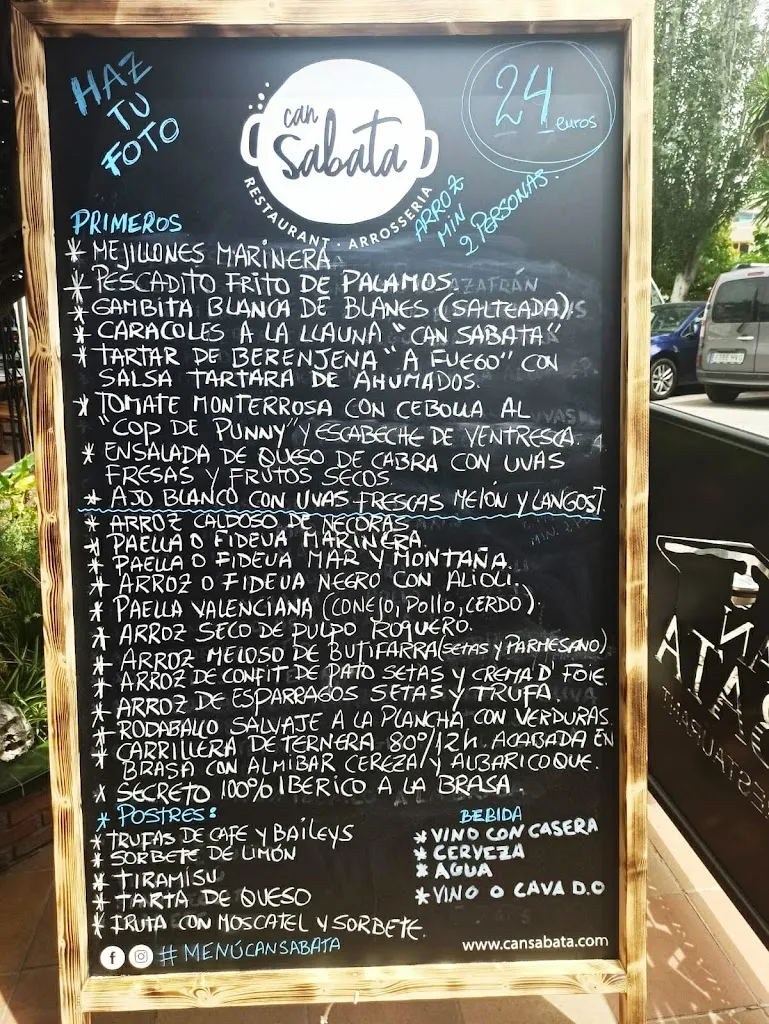 HAZ
TU
FOTO
can
Sabata
RESTAURANT · ARROSSERIA
24
euros
ARROZ
MIN
2 PERSONAS.
PRIMEROS
* MEJILLONES MARINERA
* PESCADITO FRITO DE PALAMOS
* GAMBITA BLANCA DE BLANES (SALTEADA)
* CARACOLES A LA LLAUNA "CAN SABATA"
* TARTAR DE BERENJENA "A FUEGO" CON
SALSA TARTARA DE AHUMADOS.
* TOMATE MONTERROSA CON CEBOLLA AL
"COP DE PUNNY" Y ESCABECHE DE VENTRESCA.
* ENSALADA DE QUESO DE CABRA CON UVAS
FRESAS Y FRUTOS SECOS
* AJO BLANCO CON UVAS FRESCAS MELÓN Y LANGOST.
* ARROZ CALDOSO DE NECORAS
* PAELLA O FIDEUA MARINERA.
* PAELLA O FIDEUA MAR Y MONTAÑA.
* ARROZ O FIDEUA NEGRO CON ALIOLI.
* PAELLA VALENCIANA (CONEJO, POLLO, CERDO).
* ARROZ SECO DE PULPO ROQUERO.
* ARROZ MELOSO DE BUTIFARRA (SETAS Y PARMESANO)
* ARROZ DE CONFIT DE PATO SETAS Y CREMA D FOIE
* ARROZ DE ESPARRAGOS SETAS Y TRUFA.
* RODABALLO SALVAJE A LA PLANCHA CON VERDURAS.
* CARRILLERA DE TERNERA 80º/12h. ACABADA EN
BRASA CON ALMIBAR CEREZA Y ALBARICOQUE.
* SECRETO 100% IBERICO A LA BRASA.
* POSTRES:
* TRUFAS DE CAFE Y BAILEYS
* SORBETE DE LIMÓN
* TIRAMISU
* TARTA DE QUESO
* FRUTA CON MOSCATEL Y SORBETE.
BEBIDA
* VINO CON CASERA
* CERVEZA
* AGUA
* VINO O CAVA D.O
# MENÚCANSABATA
www.cansabata.com